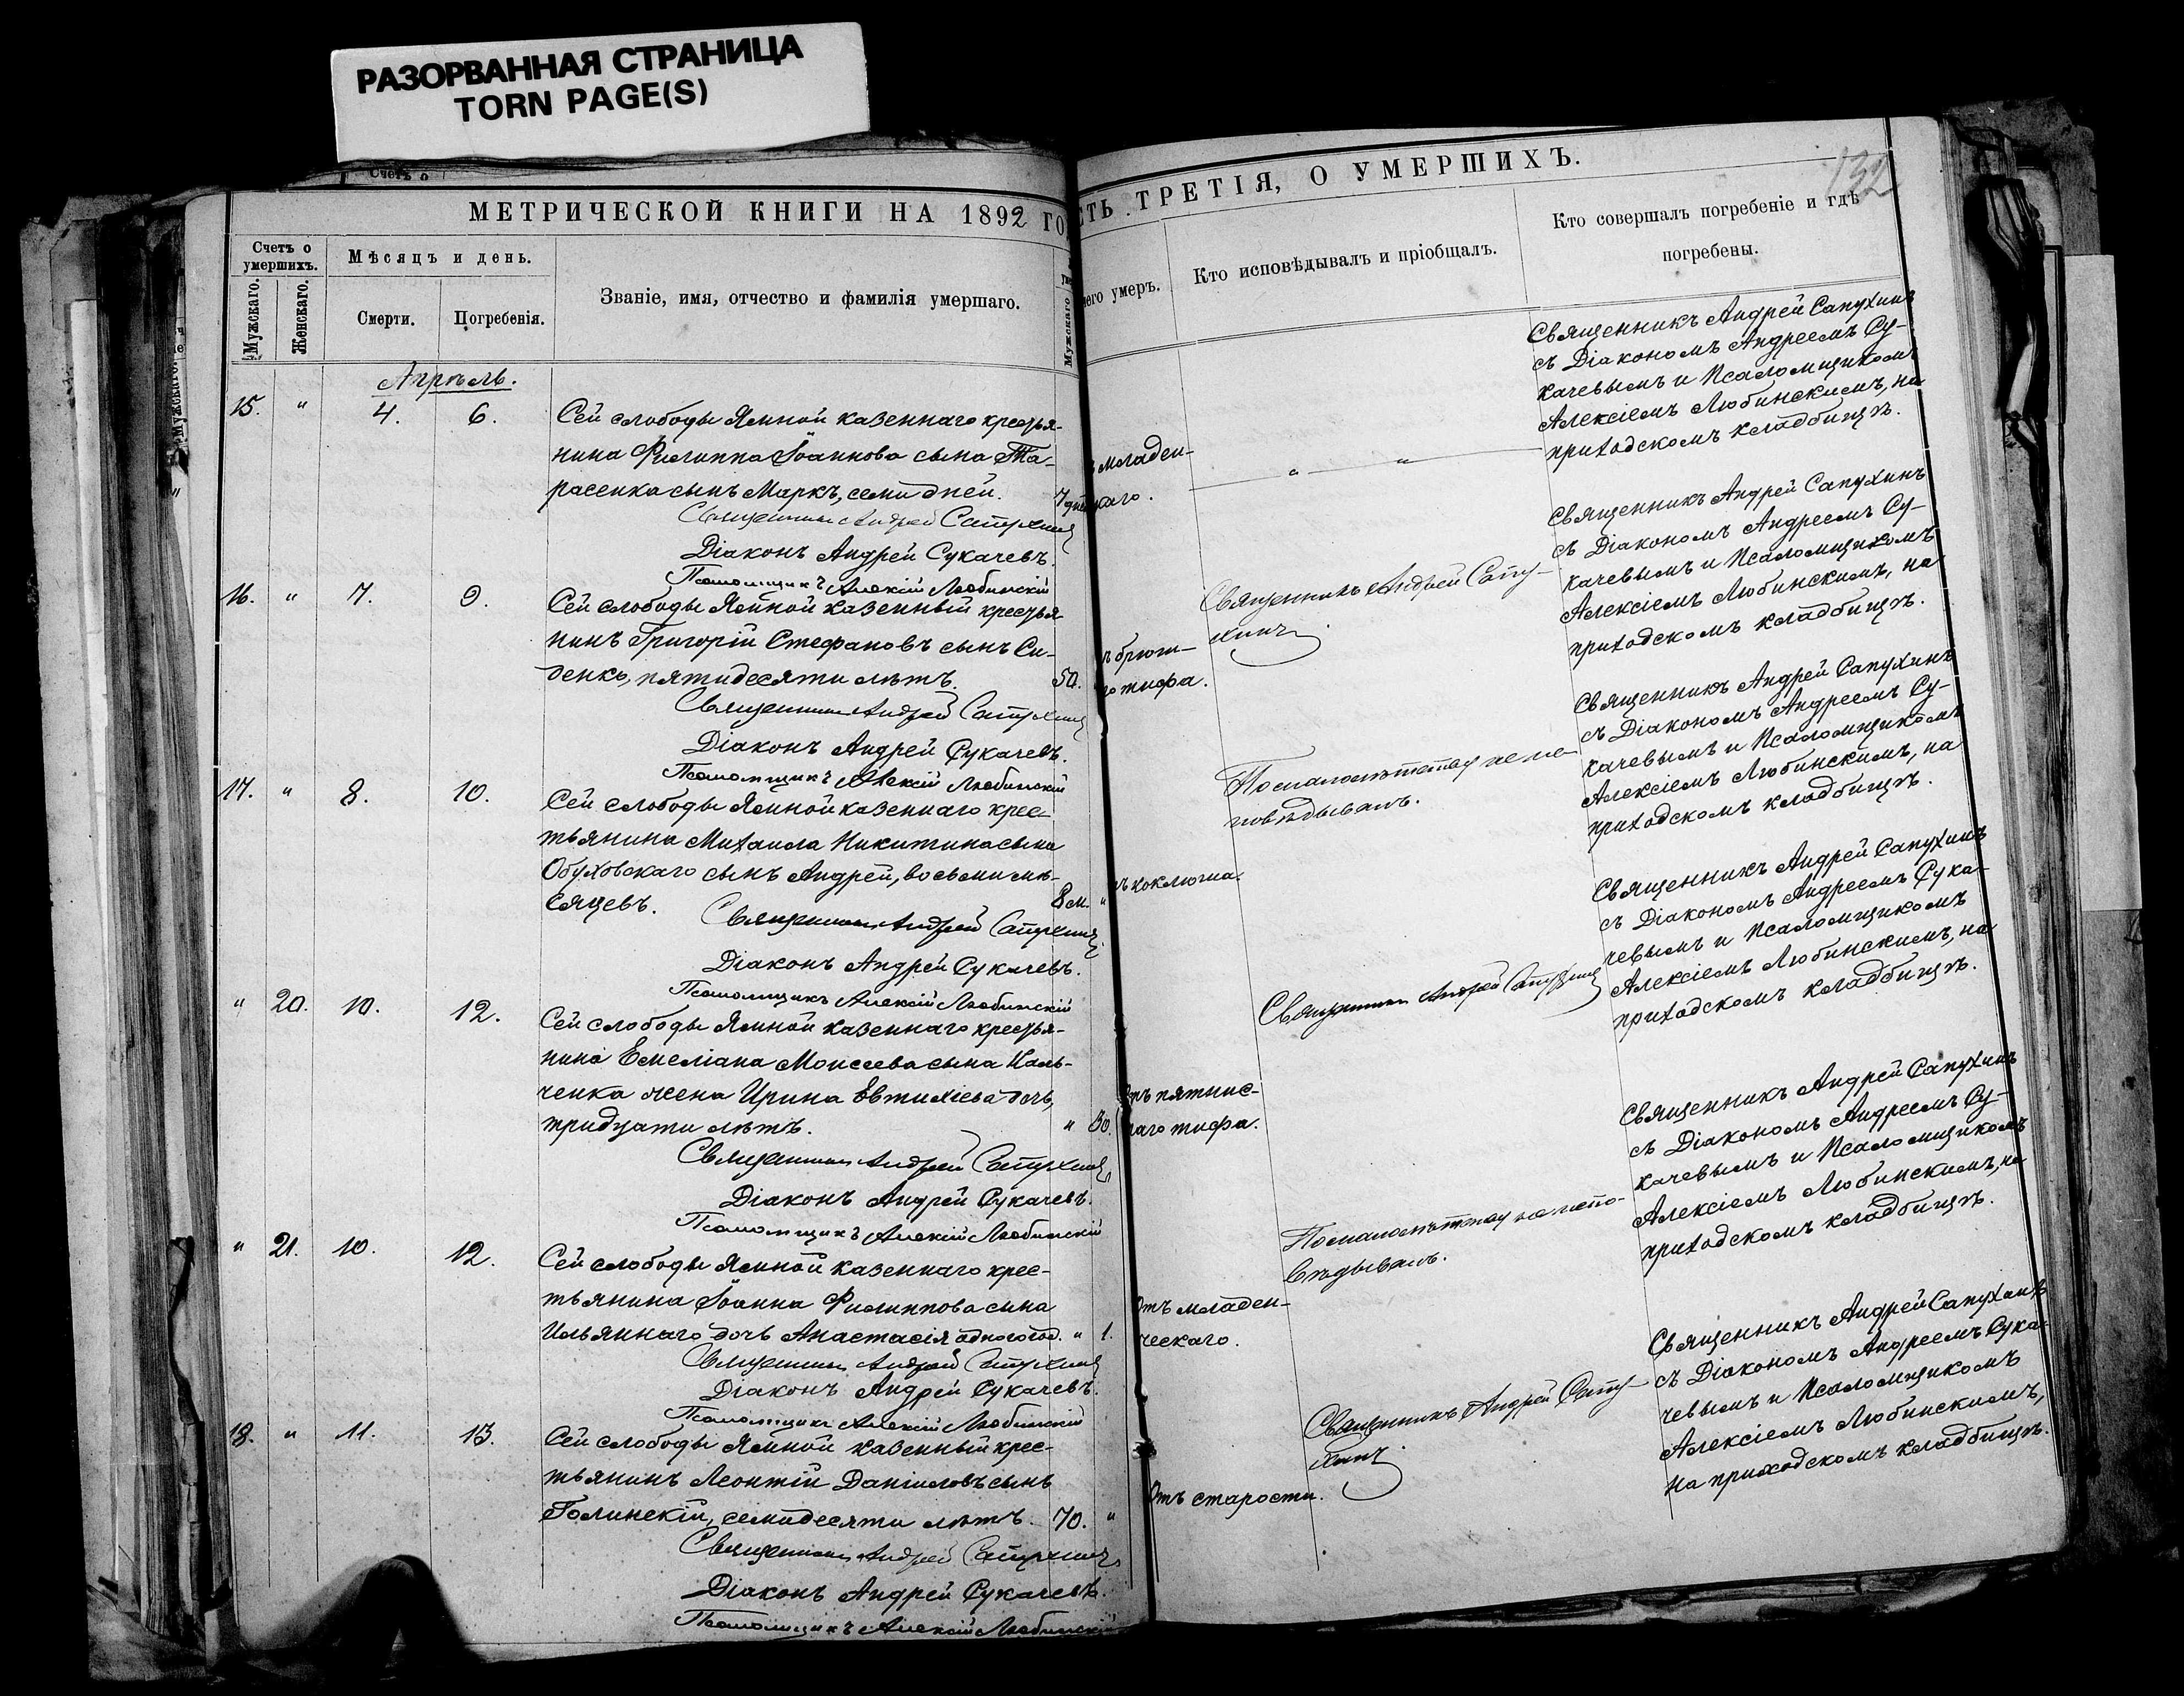 РАЗОРВАННАЯ СТРАНИЦА
TORN PAGE(S)
Счетъ о
МЕТРИЧЕСКОЙ КНИГИ НА 1892 ГО
Счетъ о умершихъ.
Мужскаго.
Женскаго.
Мѣсяцъ и день.
Смерти.
Погребенія.
Званіе, имя, отчество и фамилія умершаго.
Мужскаго
Апрѣль.
15. " 4. 6.
Сей слободы Ямной казеннаго крестья-
нина Филиппа Іоаннова сына Та-
расенка сынъ Маркъ, семи дней. 7 дн
Священникъ Андрей Сапухинъ
Діаконъ Андрей Сукачевъ.
Псаломщикъ Алексій Любинскій
16. " 7. 9.
Сей слободы Ямной казенный крестья
нинъ Григорій Стефановъ сынъ Си-
денко, пятидесяти лѣтъ. 50.
Священникъ Андрей Сапухинъ
Діаконъ Андрей Сукачевъ.
Псаломщикъ Алексій Любинскій
17. " 8. 10.
Сей слободы Ямной казеннаго крес-
тьянина Михаила Никитина сына
Обуховскаго сынъ Андрей, восьми мѣ-
сяцевъ. 8 м. "
Священникъ Андрей Сапухинъ
Діаконъ Андрей Сукачевъ.
Псаломщикъ Алексій Любинскій
" 20. 10. 12.
Сей слободы Ямной казеннаго крестья-
нина Емеліана Моисеева сына Каль-
ченка жена Ирина Евтихіева дочь,
тридцати лѣтъ. " 30.
Священникъ Андрей Сапухинъ
Діаконъ Андрей Сукачевъ.
Псаломщикъ Алексій Любинскій
" 21. 10. 12.
Сей слободы Ямной казеннаго крес-
тьянина Іоанна Филиппова сына
Ильяннаго дочь Анастасія одного год. " 1.
Священникъ Андрей Сапухинъ
Діаконъ Андрей Сукачевъ.
Псаломщикъ Алексій Любинскій
18. " 11. 13.
Сей слободы Ямной казенный крес-
тьянинъ Леонтій Даніиловъ сынъ
Голинскій, семидесяти лѣтъ. 70. "
Священникъ Андрей Сапухинъ
Діаконъ Андрей Сукачевъ.
Псаломщикъ Алексій Любинскій
СТЬ ТРЕТІЯ, О УМЕРШИХЪ.
132
чего умеръ.
Кто исповѣдывалъ и пріобщалъ.
Кто совершалъ погребеніе и гдѣ
погребены.
младен-
каго.
" "
Священникъ Андрей Сапухинъ
съ Діакономъ Андреемъ Су-
качевымъ и Псаломщикомъ
Алексіемъ Любинскимъ, на
приходскомъ кладбищѣ.
ъ брюш-
го тифа.
Священникъ Андрей Сапу-
хинъ
Священникъ Андрей Сапухинъ
съ Діакономъ Андреемъ Су-
качевымъ и Псаломщикомъ
Алексіемъ Любинскимъ, на
приходскомъ кладбищѣ.
ъ коклюша.
По малолѣтству не ис
повѣдыванъ.
Священникъ Андрей Сапухинъ
съ Діакономъ Андреемъ Су-
качевымъ и Псаломщикомъ
Алексіемъ Любинскимъ, на
приходскомъ кладбищѣ.
тъ пятнис-
аго тифа.
Священникъ Андрей Сапухинъ
Священникъ Андрей Сапухинъ
съ Діакономъ Андреемъ Сука-
чевымъ и Псаломщикомъ
Алексіемъ Любинскимъ, на
приходскомъ кладбищѣ.
Отъ младен-
ческаго.
По малолѣтству не испо-
вѣдыванъ.
Священникъ Андрей Сапухинъ
съ Діакономъ Андреемъ Су-
качевымъ и Псаломщикомъ
Алексіемъ Любинскимъ, на
приходскомъ кладбищѣ.
Отъ старости.
Священникъ Андрей Сапу-
хинъ
Священникъ Андрей Сапухинъ
съ Діакономъ Андреемъ Сука-
чевымъ и Псаломщикомъ
Алексіемъ Любинскимъ,
на приходскомъ кладбищѣ.